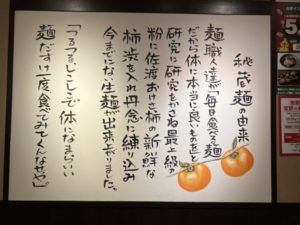 秘蔵麺の由来
麺職人達が「毎日食べる麺
だから体に本当に良いものを」と
研究に研究をかさね最上級の
粉に佐渡おけさ柿の新鮮な
柿渋を入れ丹念に練り込み
今までにない生麺が出来上がりました。
「つるつる、しこしこで体になまらいい
麺だすけ一度食べてみてくんなせや」